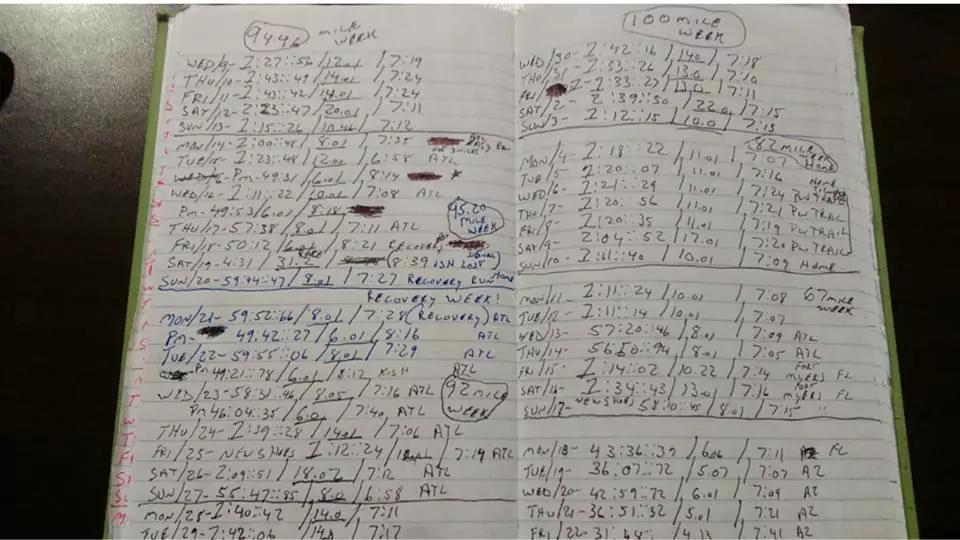 94.46 MILE WEEK
WED/9- 1:27::56 /12.01 / 7:19
THU/10- 1:43::49 /14.01 / 7:24
FRI/11- 1:43::42 /14.01 / 7:24
SAT/12- 2:23::47 /20.01 / 7:11
SUN/13- 1:15::26 /10.46 / 7:12
MON/14- 1:00::48 / 8.01 / 7:35
TUE/15- 1:23::48 /12.00 / 6:58 ATL
Pm- 49:31 /6.01 / 8:14
WED/16- 1:11::22 /10.01 / 7:08 ATL
Pm- 49:53/6.01 / 8:18
95.20 MILE WEEK
THU/17- 57:38 /8.01 / 7:11 ATL
FRI/18- 50:12 /6.01 / 8:21 RECOVERY
SAT/19- 4:31 / 31.2 / 8:39
SUN/20- 59:44::47/ 8.01 / 7:27 RECOVERY RUN HOME
RECOVERY WEEK!
MON/21- 59:52::66/8.01/ 7:28 (RECOVERY) ATL
Pm- 49:42::27 / 6.01 / 8:16 ATL
TUE/22- 59:55::06 / 8.01 / 7:29 ATL
Pm 49:21::78 / 6.01 / 8:12 ATL
WED/23- 58:31::46 / 8.05 / 7:16 ATL
92 MILE WEEK
Pm 46:04:35 / 6.01 / 7:40 ATL
THU/24- 1:39::28 / 14.01 / 7:06 ATL
FRI/25- NEW SHOES 1:12::24 / 7:14 ATL
SAT/26- 2:09::51 / 18.02 / 7:12 ATL
SUN/27- 55:47::85 / 8.0 / 6:58 ATL
MON/28- 1:40::42 / 14.0 / 7:11
TUE/29- 1:42::06 / 7:17
100 MILE WEEK
WED/30- 1:42::16 /14.0 / 7:18
THU/31- 1:33::26 /13.0 / 7:10
FRI/1- 1:33::27 /13.0 / 7:11
SAT/2- 2:39::30 / 22.0 / 7:15
SUN/3- 1:12::15 /10.0 / 7:13
82 MILE WEEK
MON/4- 1:18::22 / 11.01 / 7:07 HOME
TUE/5- 1:20::07 / 11.01 / 7:16
WED/6- 1:21::29 / 11.01 / 7:24 PW TRAIL
THU/7- 1:20::56 / 11.01 / 7:21 PW TRAIL
FRI/8- 1:20::35 / 11.01 / 7:19 PW TRAIL
SAT/9- 2:04::52 / 17.01 / 7:20 PW TRAIL
SUN/10- 1:11::40 / 10.01 / 7:09 HOME
MON/11- 1:11::24 / 10.01 / 7:08 67 MILE WEEK
TUE/12- 1:11::14 / 10.01 / 7:07
WED/13- 57:20::46 / 8.01 / 7:09 ATL
THU/14- 56:50::94 / 8.01 / 7:05 ATL
FRI/15- 1:14::02 / 10.22 / 7:14 FORT MYERS FL
SAT/16- 1:34::43 / 13.01 / 7:16 FORT MYERS FL
SUN/17- NEW SHOES 58:10::45 / 8.01 / 7:15 "
MON/18- 43:36::39 / 6.06 / 7:11 FL
TUE/19- 36:07::72 / 5.07 / 7:07 AZ
WED/20- 42:59::72 / 6.01 / 7:09 AZ
THU/21- 36:51::32 / 5.01 / 7:21 AZ
FRI/22- 31:48:: / 4.13 / 7:41 AZ